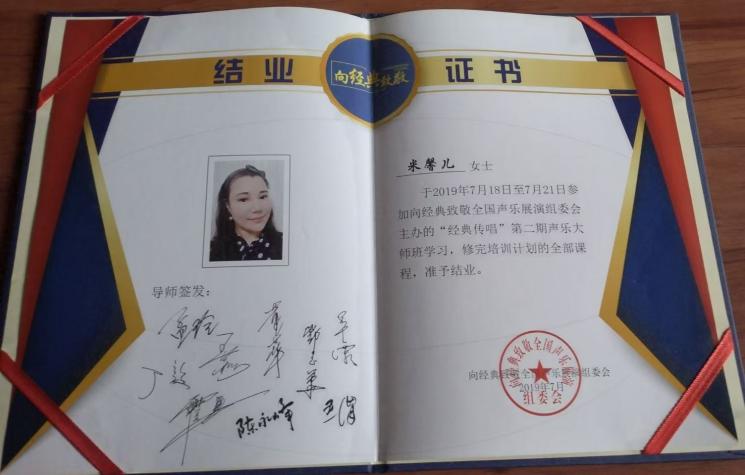 结业
向经典致敬
证书
米馨儿 女士
于2019年7月18日至7月21日参
加向经典致敬全国声乐展演组委会
主办的“经典传唱”第二期声乐大
师班学习，修完培训计划的全部课
程，准予结业。
导师签发：
陈永峰
向经典致敬全国声乐展演组委会
2019年7月
向经典致敬全国声乐展演
组委会